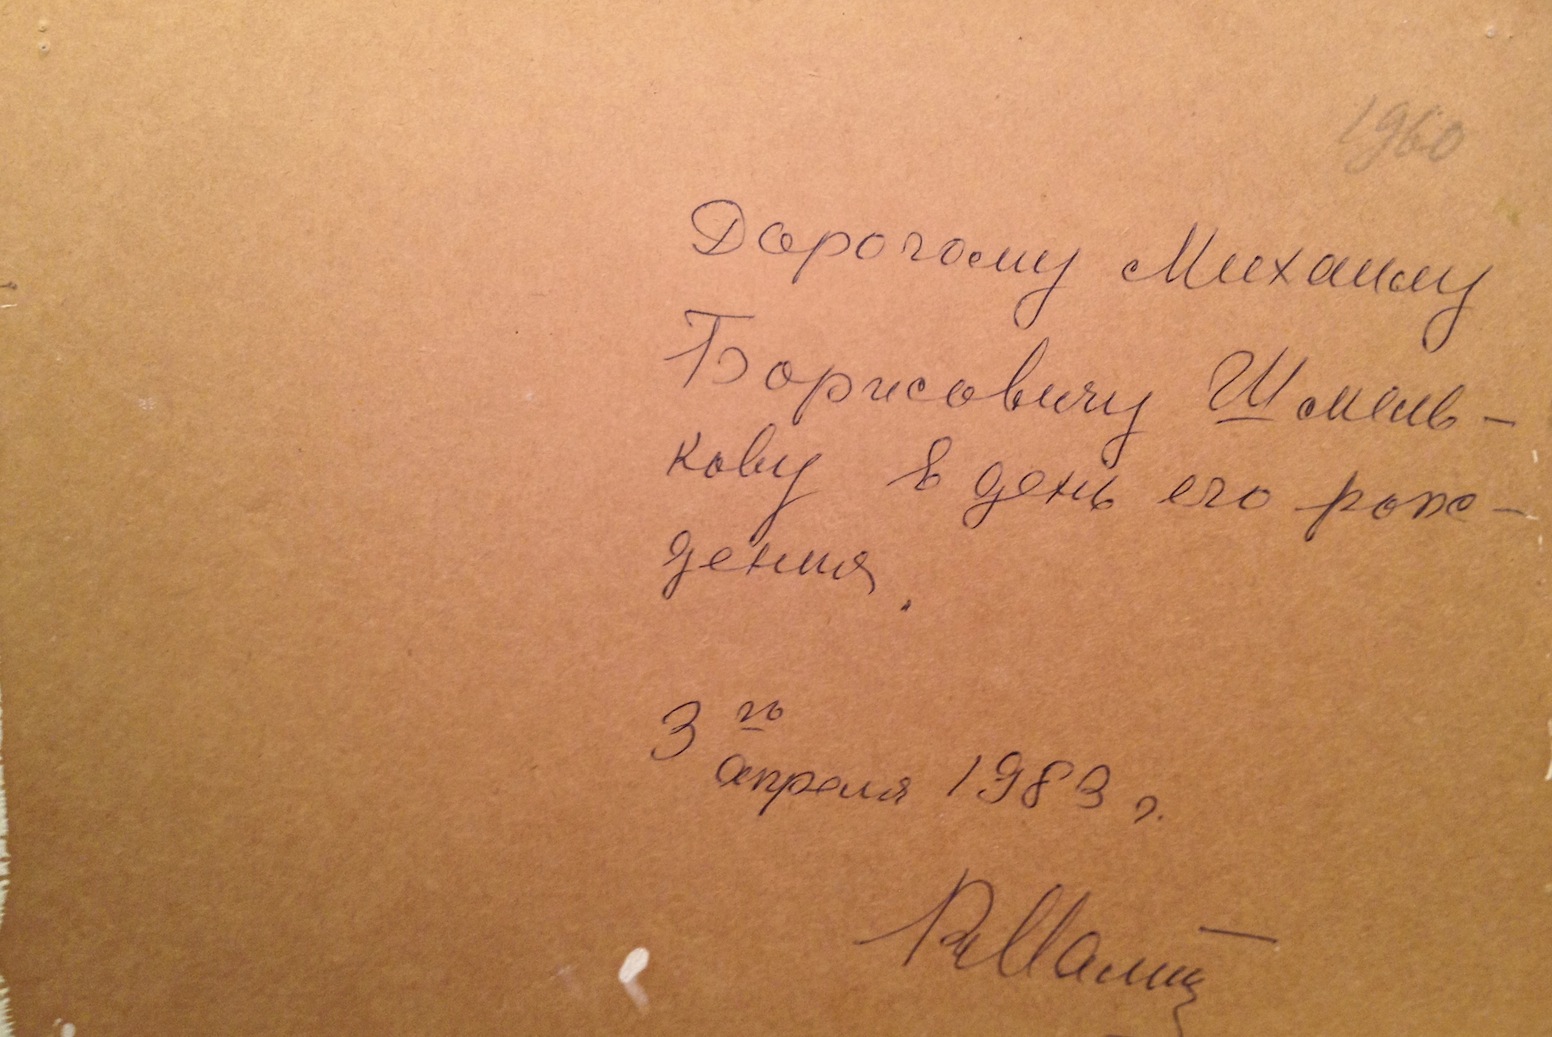 1960
Дорогому Михаилу
Борисовичу Шмель-
кову в день его рож-
дения.
3го
апреля 1983 г.